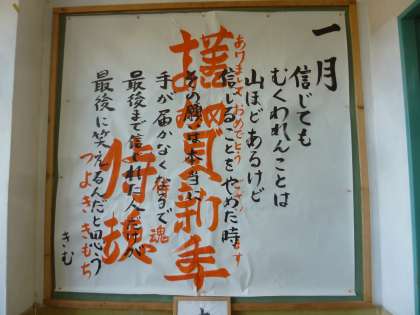 一月
信じても
むくわれんことは
山ほどあるけど
信じることをやめた時
その願いは本当に
手が届かなくなるで
最後まで信じれた人だけが
最後に笑えるんだと思う
きむ
謹賀新年
あけましておめでとうございます
侍魂
つよききもち